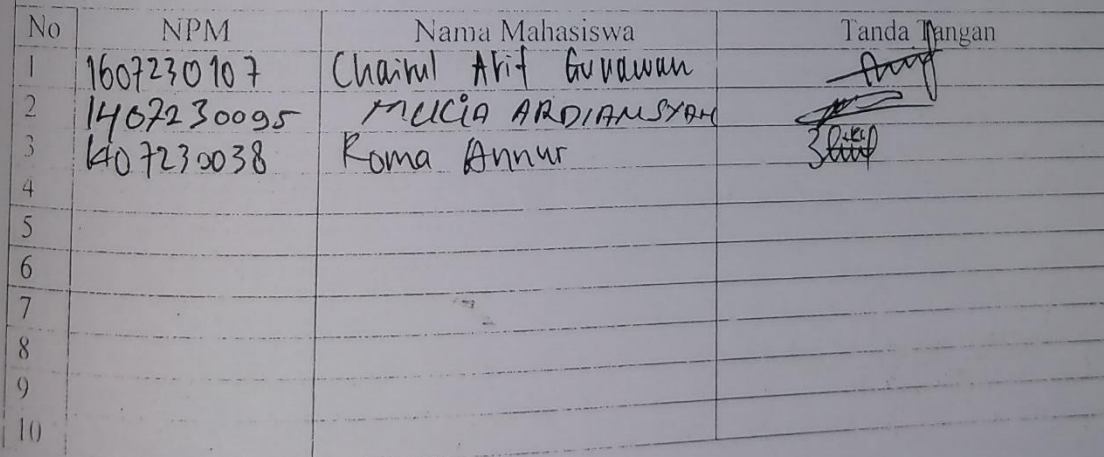 No NPM Nama Mahasiswa Tanda Tangan
1 1607230107 Chairul Arif Gunawan
2 1407230095 MULIA ARDIANSYAH
3 1407230038 Roma Annur
4
5
6
7
8
9
10